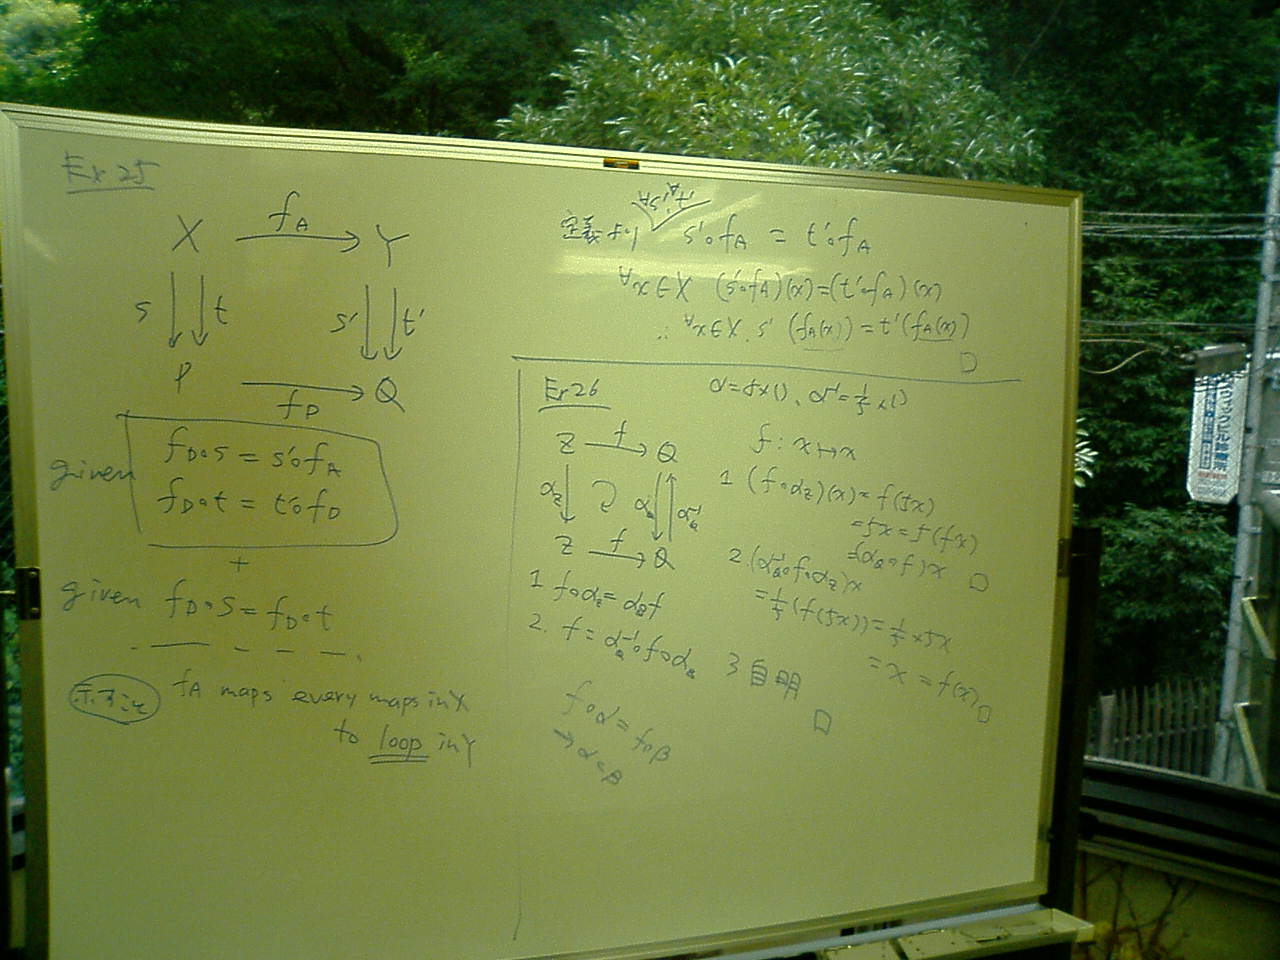 Ex 25
X fA Y
s t s' t'
P fD Q
given fD∘s = s'∘fA
fD∘t = t'∘fD
+
given fD∘s = fD∘t
示すこと fA maps every maps in X
to loop in Y
定義より s'∘fA = t'∘fA
∀x∈X (s'∘fA)(x)=(t'∘fA)(x)
∴ ∀x∈X. s'(fA(x)) = t'(fA(x))
□
Ex 26
α=5×(), α⁻¹=1/5×()
Z f Q
αz αQ αQ⁻¹
Z f Q
1 f∘αz = αQ∘f
2. f = αQ⁻¹∘f∘αz
f : x↦x
1 (f∘αz)(x) = f(5x)
=5x = 5(fx)
=(αQ∘f)x □
2. (αQ⁻¹∘f∘αz)x
= 1/5(f(5x)) = 1/5×5x
= x = f(x) □
3 自明
□
f∘α = f∘β
→ α=β